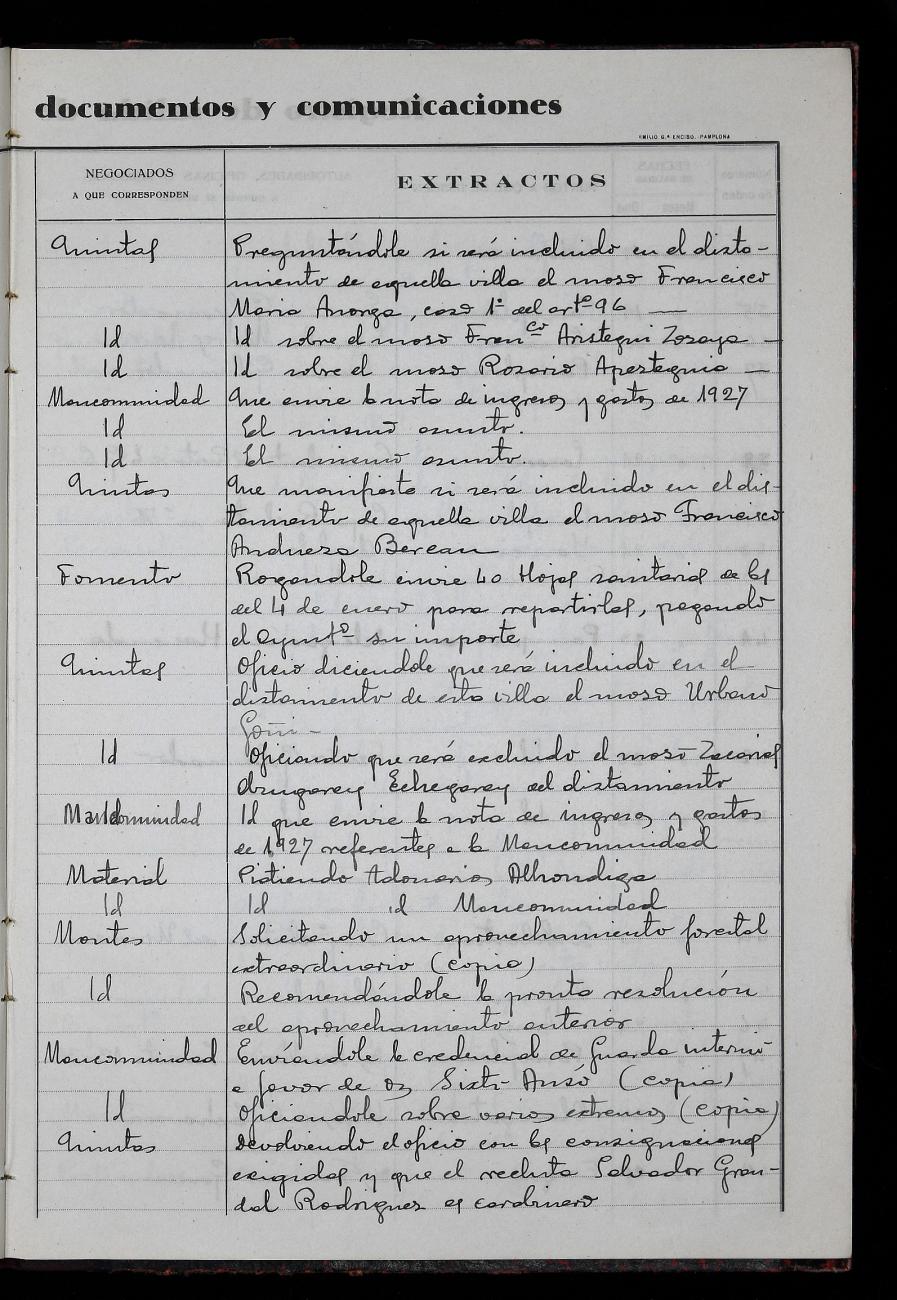 documentos y comunicaciones
EMILIO G.ª ENCISO. PAMPLONA
NEGOCIADOS
A QUE CORRESPONDEN
EXTRACTOS
Quintas Preguntándole si será incluido en el alista-
miento de aquella villa el moso Francisco
Maria Anorga, caso 1º del artº 96 —
Id Id sobre el moso Franco Aristegui Zozaya —
Id Id sobre el moso Rosario Apesteguia —
Mancomunidad Que envie la nota de ingresos y gastos de 1927
Id El mismo asunto.
Id El mismo asunto.
Quintas Que manifieste si será incluido en el alis-
tamiento de aquella villa el moso Francisco
Andueza Bereau
Fomento Rogandole envie 40 Hojas sanitarias de las
del 4 de enero para repartirlas, pagando
el Aymtº su importe
Quintas Oficio diciendole que será incluido en el
alistamiento de esta villa el moso Urbano
Goñi —
Id Oficiando que será excluido el moso Zacarias
Echegaray del alistamiento
Mancomunidad Id que envie la nota de ingresos y gastos
de 1927 referentes a la Mancomunidad
Material Pidiendo Adonarios Alhondiga
Id Id id Mancomunidad
Montes Solicitando un aprovechamiento forestal
extraordinario (copia)
Id Recomendándole la pronta resolución
del aprovechamiento anterior
Mancomunidad Envíandole la credencial de Guarda interino
a favor de Dn Sixto Ansó (copia)
Id Oficiandole sobre varios extremos (copia)
Quintas Devolviendo el oficio con las consignaciones
exigidas y que el recluta Salvador Gran-
dal Rodriguez es carabinero